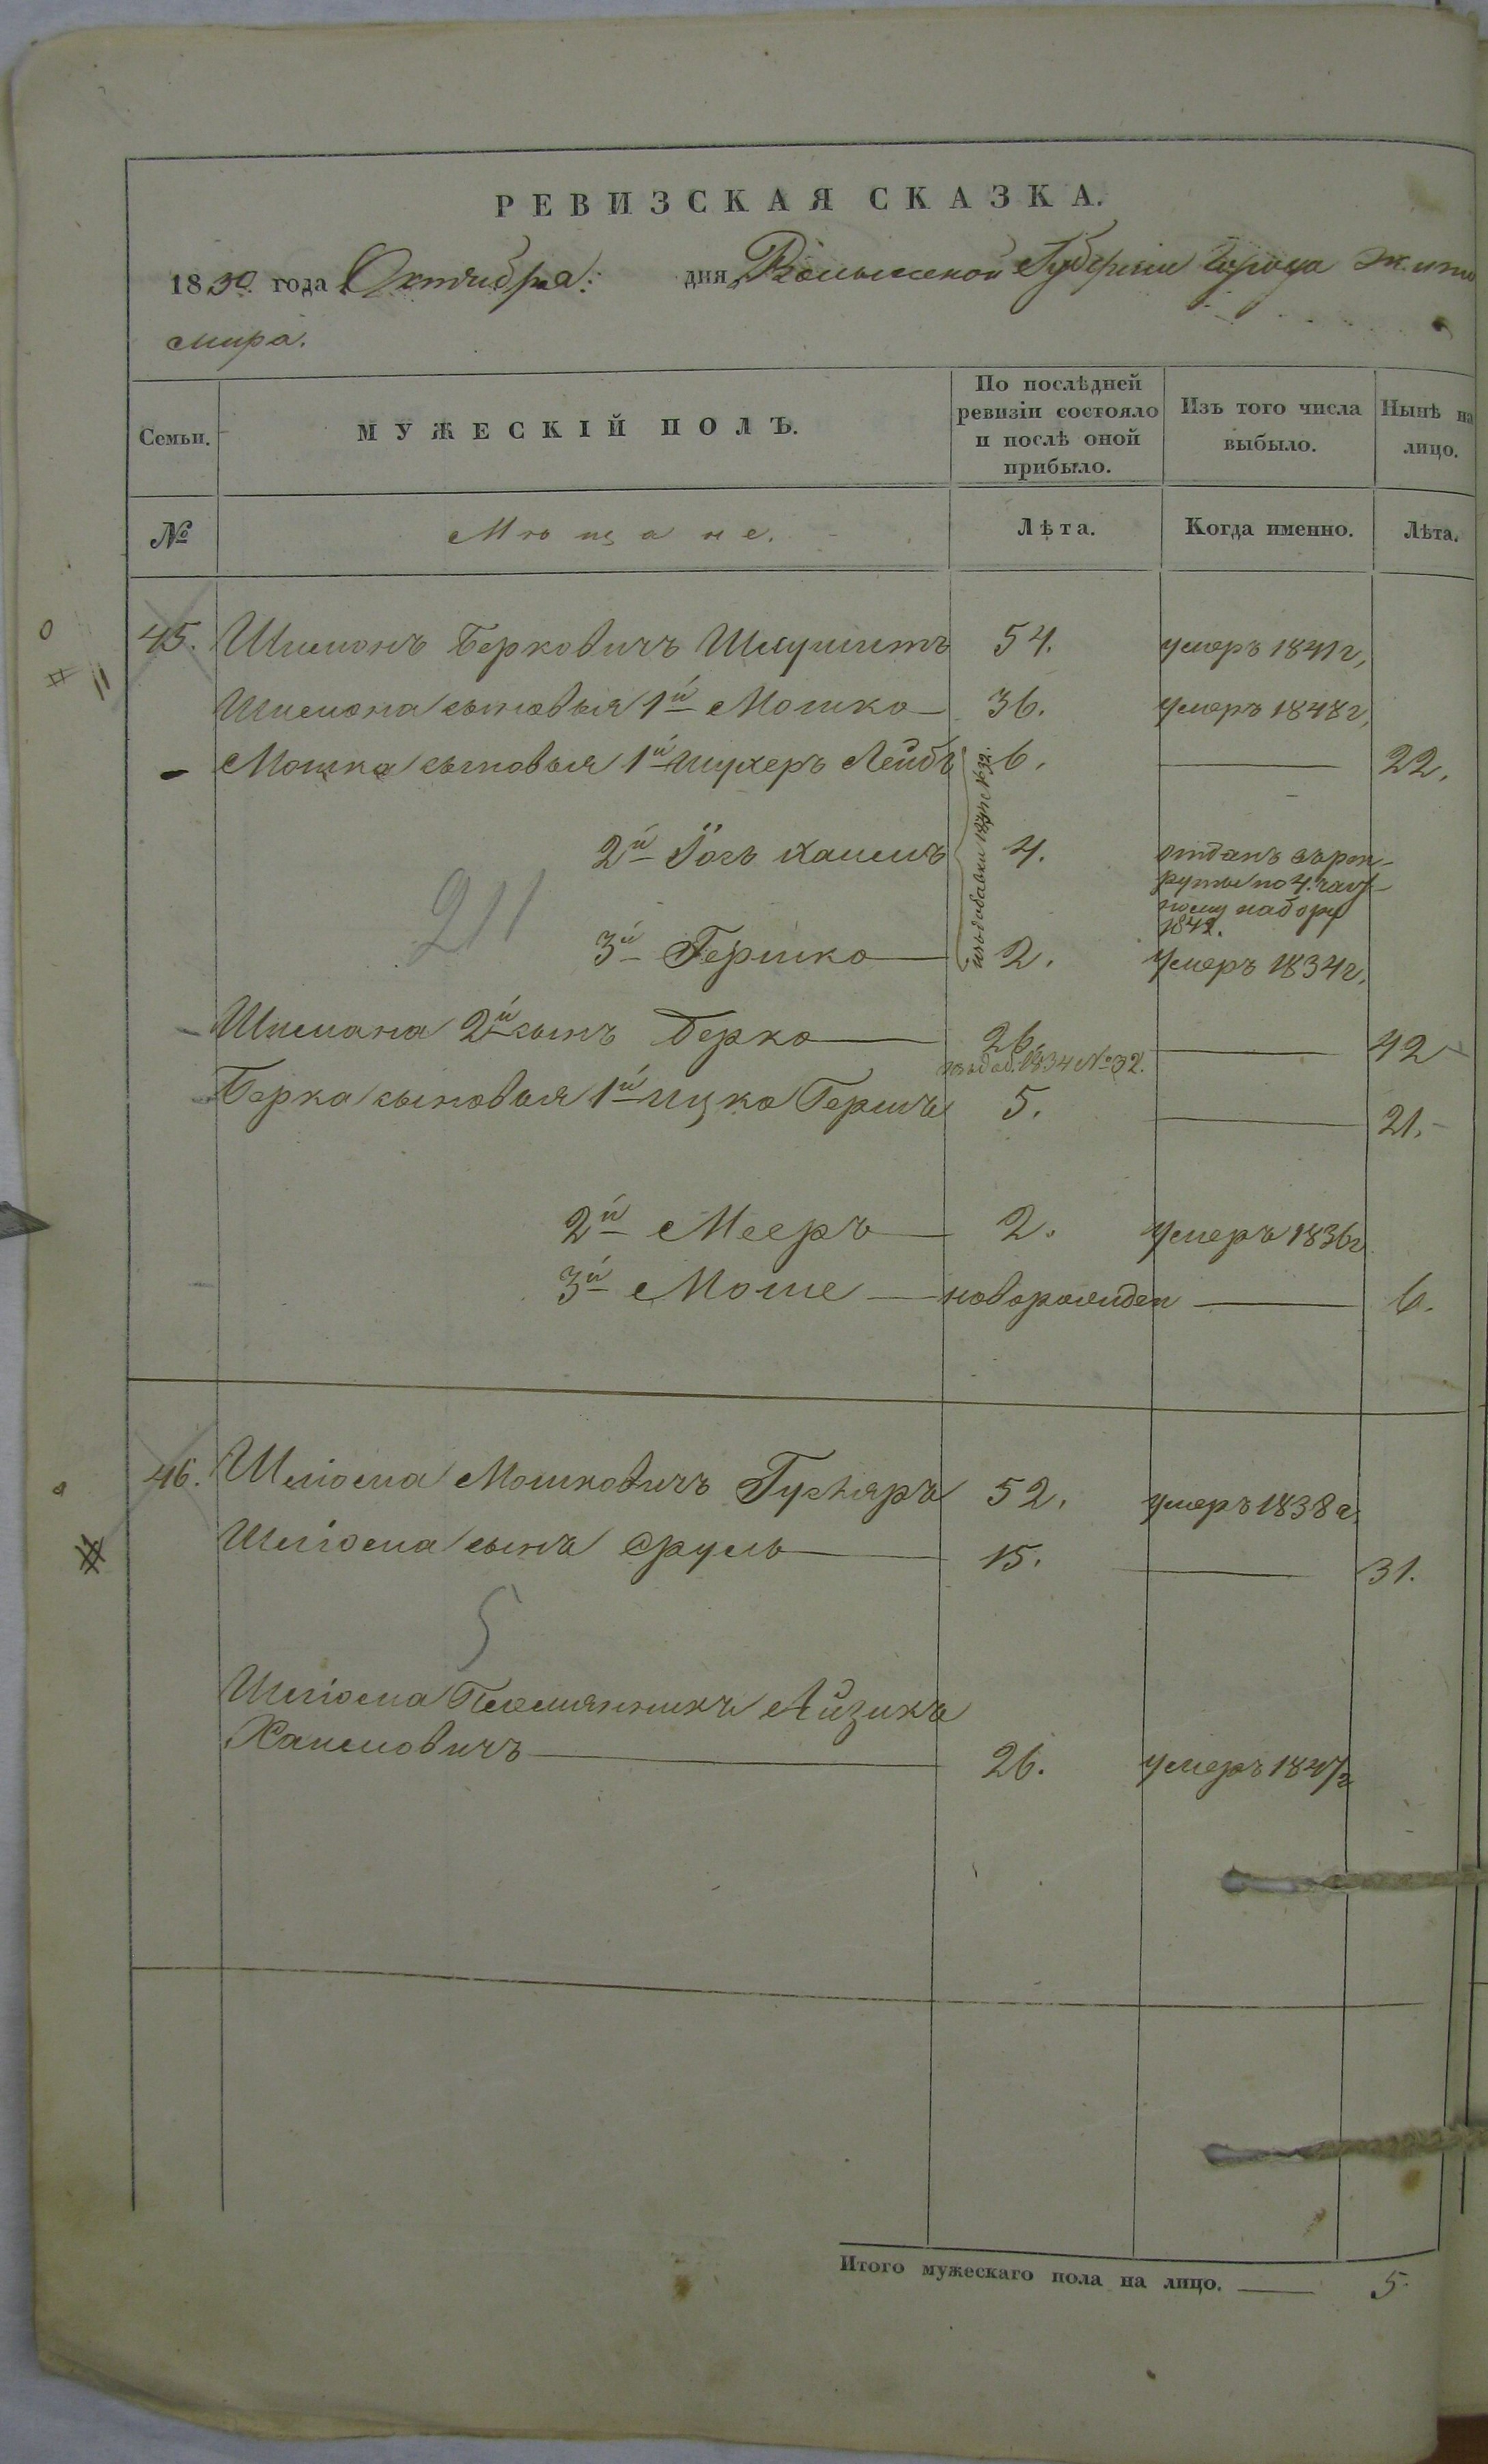 РЕВИЗСКАЯ СКАЗКА.
1850 года Октября: дня Волынской Губерніи Города Жито
мира.
Семьи.
МУЖЕСКІЙ ПОЛЪ.
По послѣдней
ревизіи состояло
и послѣ оной
прибыло.
Изъ того числа
выбыло.
Нынѣ на
лицо.
№
Мѣщане.
Лѣта.
Когда именно.
Лѣта.
45. Шимонъ Берковичъ 54. умеръ 1841г,
Шимона сыновья 1й Мошко 36. умеръ 1848г,
Мошка сыновья 1й Шухеръ Лейбъ 6. — 22.
изъ добавки 1834г №32.
2й Іось Хаимъ 4. отданъ въ рек-
руты по 4. част-
ному набору
1842.
211
3й Гершко 2. Умеръ 1834г,
Шимона 2й сынъ Берко 26. — 42
изъ доб. 1834 №32.
Берка сыновья 1й Ицко Гершъ 5. — 21.
2й Мееръ 2. Умеръ 1836г
3й Моше — новорожден — 6.
46. Шліома Мошковичъ Гусняръ 52. умеръ 1838г.
Шліома сынъ Сруль 15. — 31.
5
Шліома Племянникъ Айзикъ
Хаимовичъ 26. умеръ 1847г
Итого мужескаго пола на лицо. — 5